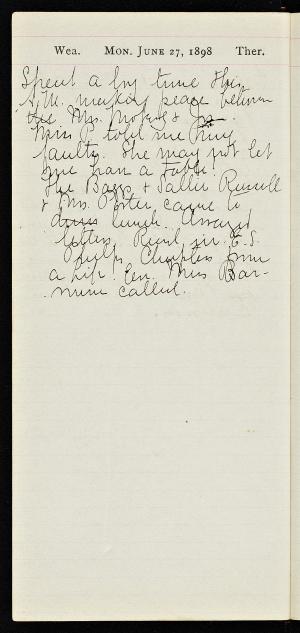 Wea. MON. JUNE 27, 1898 Ther.
Spent a long time this
A.M. making peace between
the Mrs. &
Miss P. told me my
faults. She may not let
me han a table!
The Bapps & Sallie Russell
& Mrs. Porter came to
lunch. Answered
letters. Read in E. S.
Phelps Chapters from
a Life. Eve. Miss Bar-
num called.